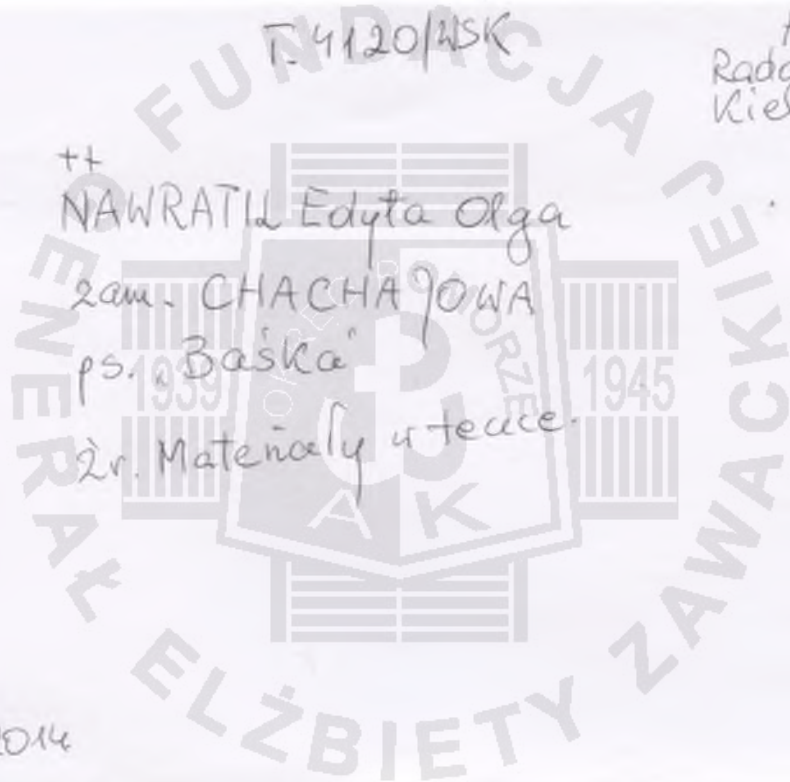 T. 4120/WSK
Rado
Kiel
++
NAWRATIL Edyta Olga
zam. CHACHAJOWA
ps. „Baśka”
Źr. Materiały w teczce.
2014
FUNDACJA GENERAŁ ELŻBIETY ZAWACKIEJ
1939
1945
POMORZE
AK